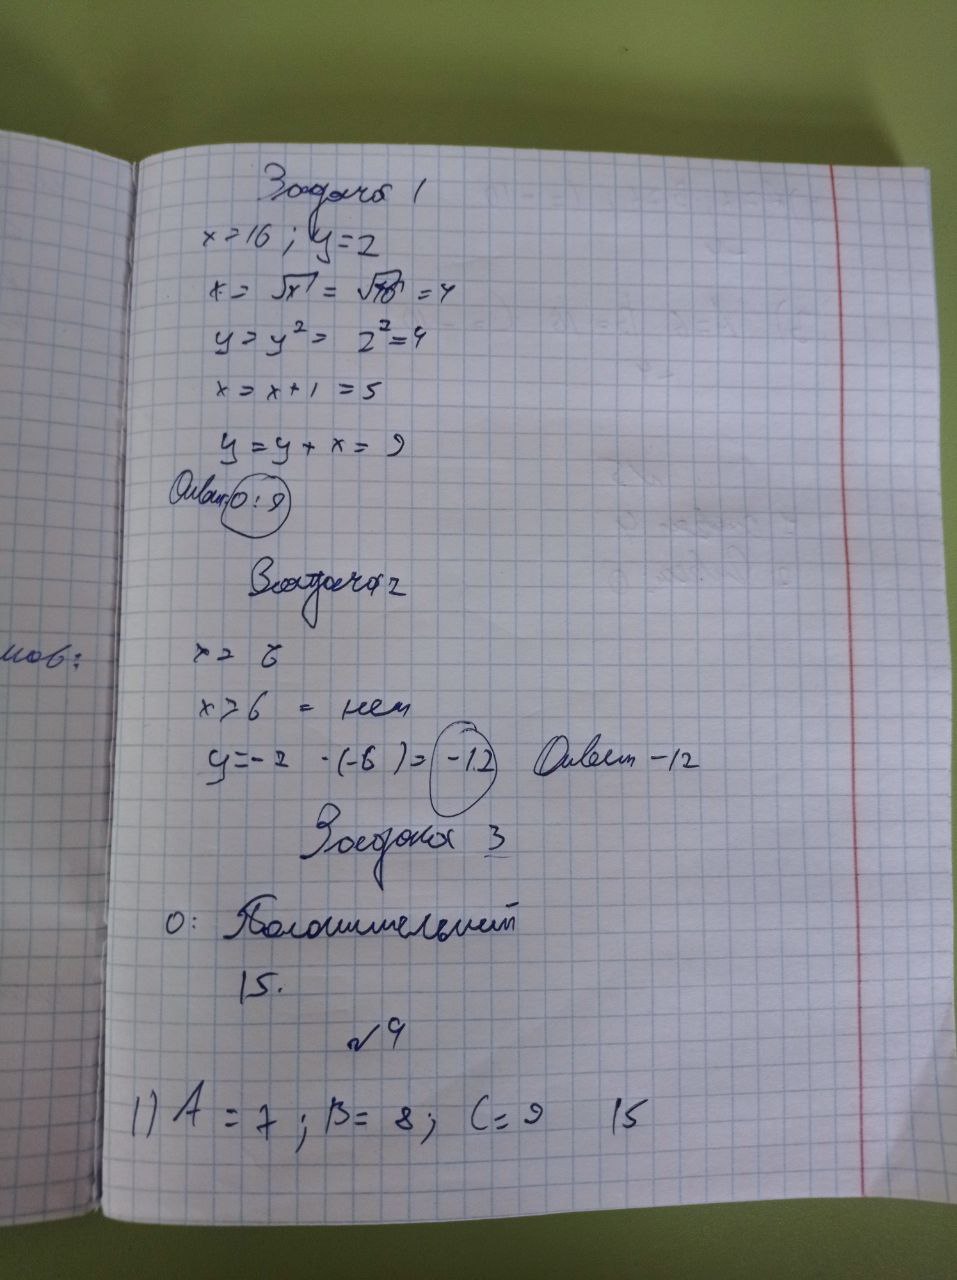 Задача 1
x = 16 ; y = 2
x = √x = √16 = 4
y = y² = 2² = 4
x = x + 1 = 5
y = y + x = 9
Ответ О: 9
Задача 2
мов:
x = 6
x > 6 = нет
y = -2 · (-6) = -12 Ответ -12
Задача 3
О: Положительный
15.
√9
1) A = 7 ; B = 8 ; C = 9 15